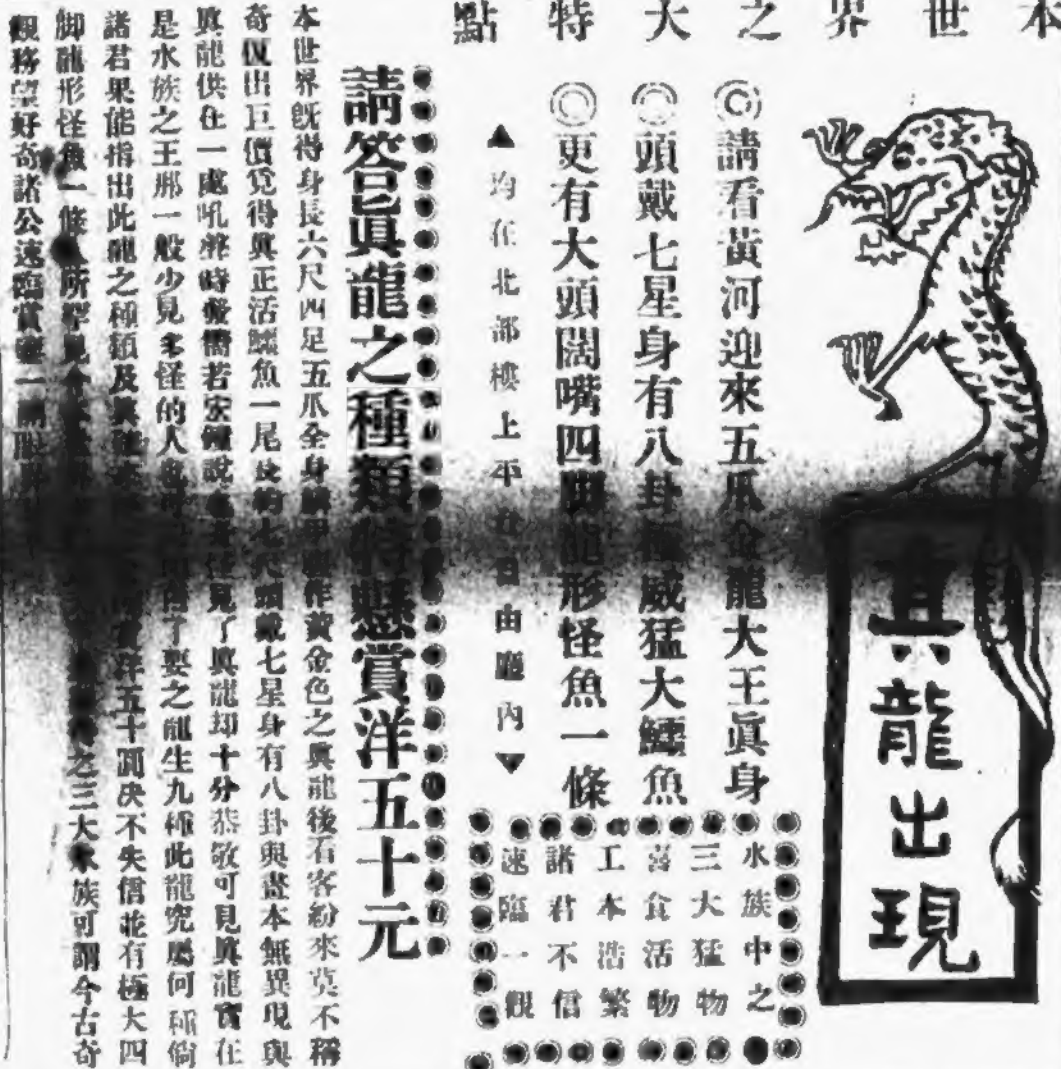 本世界之大特點
真龍出現
◎請看黃河迎來五爪金龍大王眞身
◎頭戴七星身有八卦極威猛大鱷魚
◎更有大頭闊嘴四脚龍形怪魚一條
▲均在北部樓上平 自由廳內▼
水族中之
三大猛物
喜食活物
工本浩繁
諸君不信
速臨一觀
請答眞龍之種類特懸賞洋五十元
本世界旣得身長六尺四足五爪全身 作黃金色之眞龍後石客紛來莫不稱
奇復出巨價覓得眞正活鱷魚一尾長約 戴七星身有八卦與畫本無異現與
眞龍供在一處吼聲時發 若 見了眞龍却十分恭敬可見眞龍實在
是水族之王那一般少見多怪的人 要之龍生九種此龍究屬何種倘
諸君果能指出此龍之種類及 洋五十圓決不失信並有極大四
脚龍形怪魚一條 所罕見 之三大水族可謂今古奇
觀務望好奇諸公速臨賞鑒一